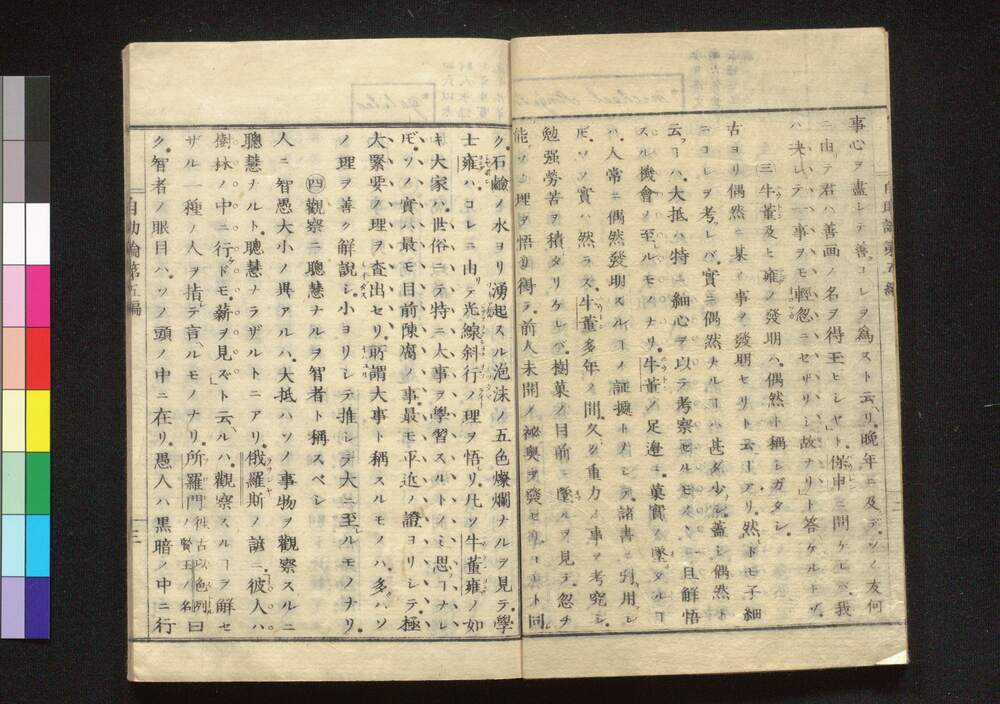 事心ヲ盡シテ善コレヲ為スト云リ。晩年ニ及テソノ友何
ニ由テ君ハ善画ノ名ヲ得玉ヒシヤト、保申ニ問ケレバ、我
ハ決シテ一事ヲモ輕忽ニセザリシ故ナリト答ケルトゾ。
三 牛董及ヒ雍ノ發明ハ、偶然ト稱シガタシ。
古ヨリ偶然ニ某ノ事ヲ發明セリト云ヿアリ。然ドモ子細
ニコレヲ考レバ、實ニ偶然ナルヿハ甚ダ少シ。蓋シ偶然ト
云ヿハ、大抵ハ特ニ細心ヲ以テ考察セルモ
一旦解悟
スル機會ノ至ルモノナリ。牛董ノ足邊ニ、菓實ノ墜タルヿ
ハ、人常ニ偶然發明スルトイフヿノ証據トノシテ、諸書ニ引用レ
ドモ、ソノ實ハ然ラズ。牛董多年ノ間、久ク重力ノ事ヲ考究シ、
勉强勞苦ヲ積タリケレバ、樹菓ノ目前ニ墜ルヲ見テ、忽チ
能ソノ理ヲ悟リ得テ、前人未開ノ祕奥ヲ發セリ。コレト同
ク、石鹼ノ水ヨリ湧起スル泡沫ノ五色燦爛ナルヲ見テ、學
士雍ハコレニ由リテ光線斜行ノ理ヲ悟リ。凡ソ牛董雍ノ如
キ大家ハ、世俗ニテ特ニ大事ヲ學習スルトノミ思フナレ
ドモ、ソノ實ハ最モ目前陳腐ノ事、最モ平近ノ證ヨリシテ、極
大緊要ノ理ヲ査出セリ。所謂大事ト稱スルモノハ、多ハソ
ノ理ヲ善ク解説シ、小ヨリシテ推シテ大ニ至ルモノナリ。
四 觀察ニ聰慧ナルヲ智者ト稱スベシ
人ニ智愚大小ノ異アルハ、大抵ハソノ事物ヲ觀察スルニ
聰慧ナルト、聰慧ナラザルトニアリ。俄羅斯ノ諺ニ、彼人ハ
樹林ノ中ニ行ドモ、薪ヲ見ズト云ルハ、觀察スルヿヲ解セ
ザル一種ノ人ヲ指テ言ルモノナリ。所羅門往古以色列ノ賢王ノ名曰
ク、智者ノ眼目ハ、ソノ頭ノ中ニ在リ。愚人ハ黒暗ノ中ニ行
自助論第五編
三